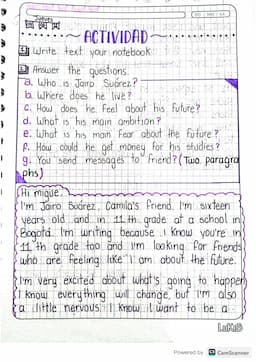 ACTIVIDAD
1 Write text your notebook
2 Answer the questions
a. Who is Jairo Suárez?
b. Where does he live?
c. How does he feel about his future?
d. What is his main ambition?
e. What is his main fear about the future?
f. How could he get money for his studies?
g. You send messages to friend? (Two paragra
phs)
Hi migue,
I'm Jairo Suárez, Camila's friend. I'm sixteen
years old and in 11 th grade at a school in
Bogotá. I'm writing because I know you're in
11 th grade too and I'm looking for friends
who are feeling like I am about the future.
I'm very excited about what's going to happen
I know everything will change, but I'm also
a little nervous. I know I want to be a
Powered by CamScanner